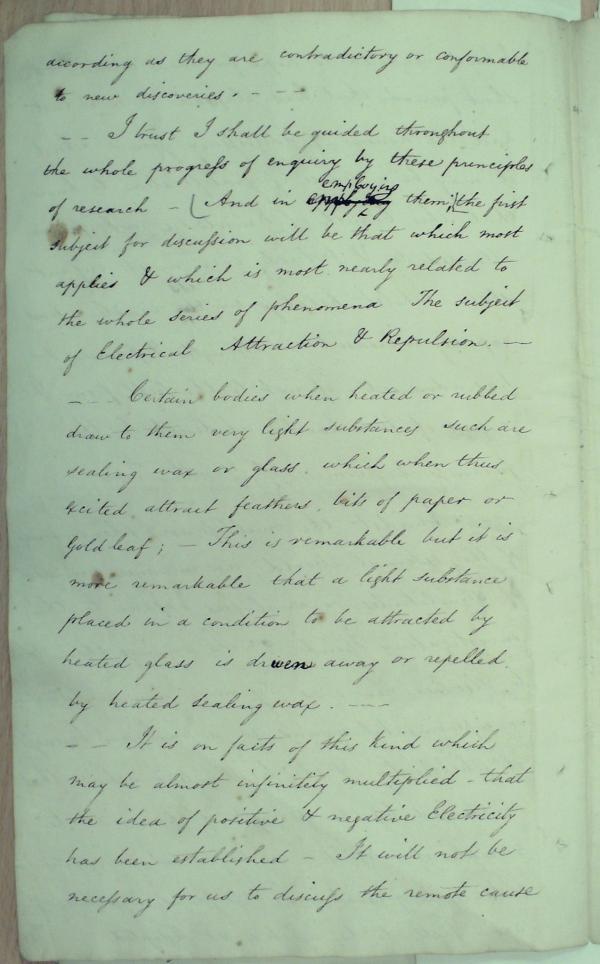 according as they are contradictory or conformable
to new discoveries. - - -
- - I trust I shall be guided throughout
the whole progress of enquiry by these principles
employing
of research - (And in them;(the first
subject for discussion will be that which most
applies & which is most nearly related to
the whole series of phenomena The subject
of Electrical Attraction & Repulsion. -
- - Certain bodies when heated or rubbed
draw to them very light substances such are
sealing wax or glass, which when thus
excited attract feathers, bits of paper or
Gold leaf; - This is remarkable but it is
more remarkable that a light substance
placed in a condition to be attracted by
heated glass is driven away or repelled
by heated sealing wax. - - -
- - It is on facts of this kind which
may be almost infinitely multiplied - that
the idea of positive & negative Electricity
has been established - It will not be
necessary for us to discuss the remote cause